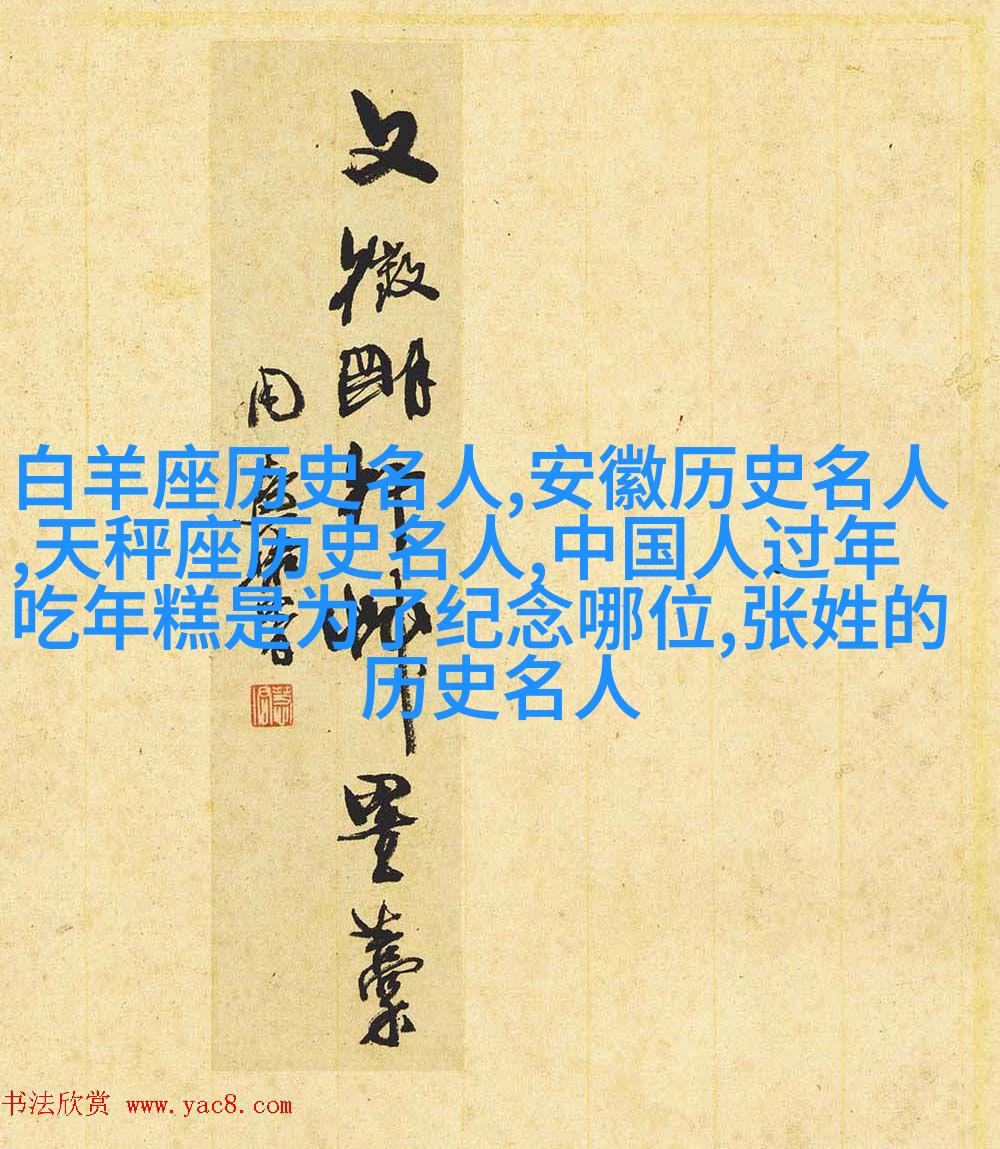 文徵明行卿墨藁
周
白羊座历史名人,安徽历史名人
,天秤座历史名人,中国人过年
吃年糕是为了纪念哪位,张姓的
历史名人
书法欣赏 www.yac8.com